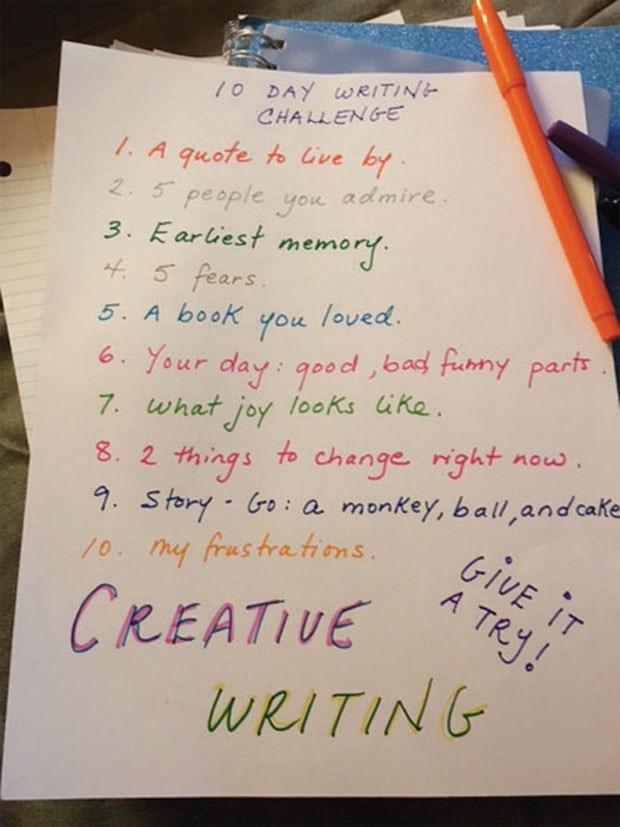 10 DAY WRITING
CHALLENGE
1. A quote to live by.
2. 5 people you admire.
3. Earliest memory.
4. 5 fears.
5. A book you loved.
6. Your day: good, bad, funny parts.
7. What joy looks like.
8. 2 things to change right now.
9. Story - Go: a monkey, ball, and cake
10. My frustrations.
GIVE IT
A TRY!
CREATIVE
WRITING